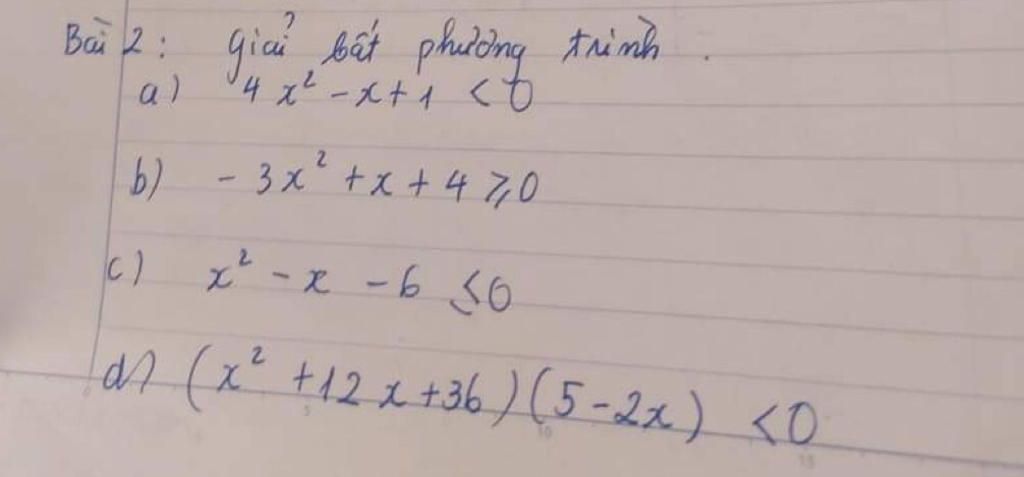 Bài 2: Giải bất phương trình.
a) 4x² - x + 1 < 0
b) - 3x² + x + 4 ⩾ 0
c) x² - x - 6 ≤ 0
d) (x² + 12x + 36)(5 - 2x) < 0